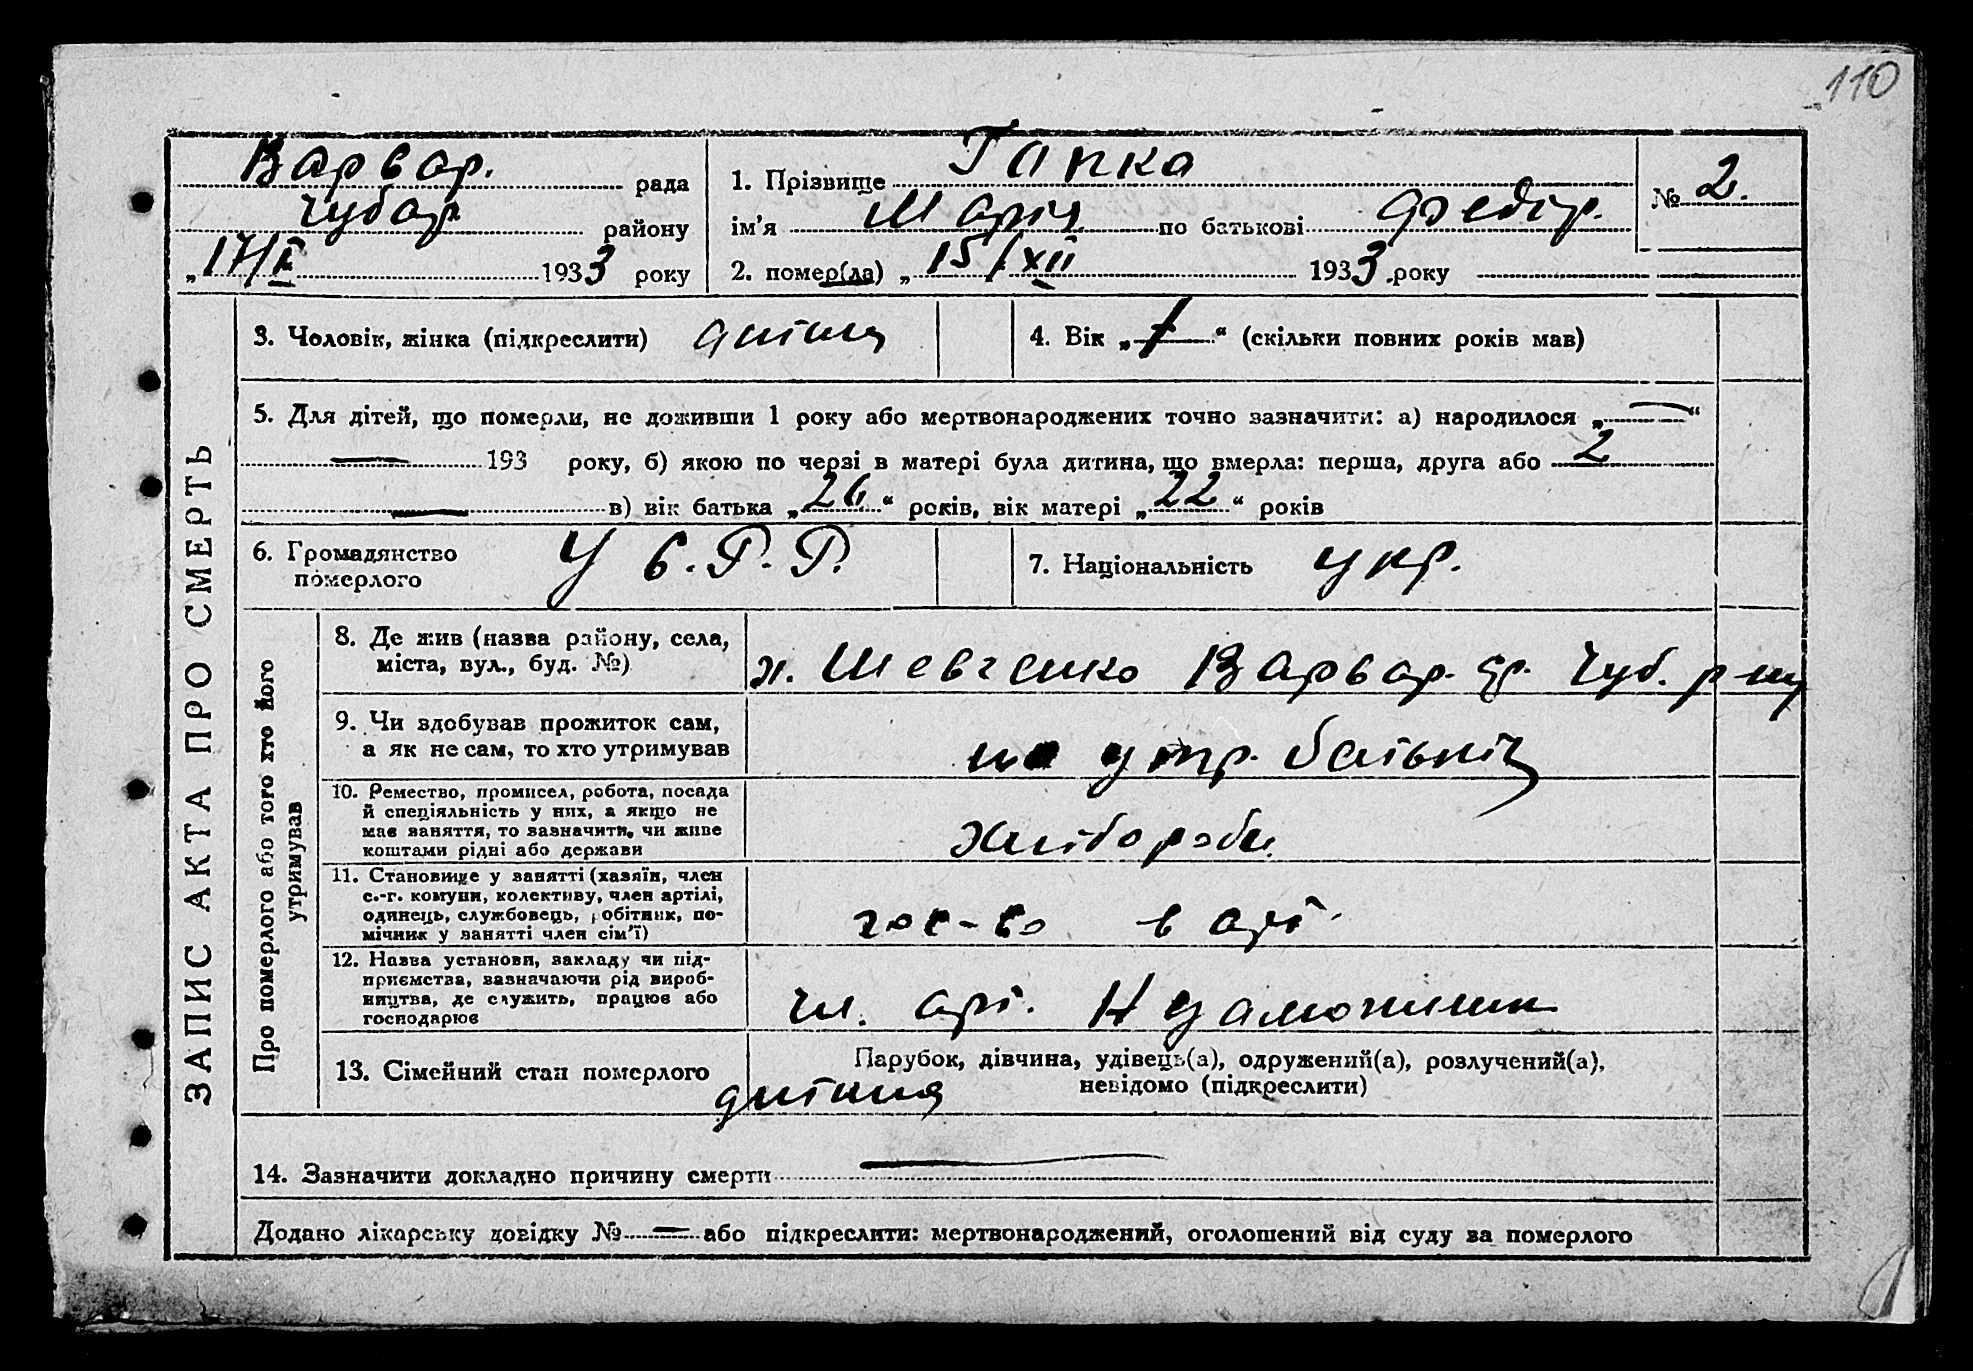 110
Варвар. рада
Чубар району
„17/I 1933 року
1. Прізвище Гапка
ім'я Марія по батькові Федір.
2. помер(ла) „15/XII 1933 року
№ 2.
ЗАПИС АКТА ПРО СМЕРТЬ
3. Чоловік, жінка (підкреслити) дитина
4. Вік „1“ (скільки повних років мав)
5. Для дітей, що померли, не доживши 1 року або мертвонароджених точно зазначити: а) народилося „—“
— 193 року, б) якою по черзі в матері була дитина, що вмерла: перша, друга або 2
— в) вік батька „26“ років, вік матері „22“ років
6. Громадянство
померлого
У С.Р.Р.
7. Національність укр.
Про померлого або того хто його
утримував
8. Де жив (назва району, села,
міста, вул., буд. №)
х. Шевченко Варвар. Чуб. р-ну
9. Чи здобував прожиток сам,
а як не сам, то хто утримував
на утр. батьків
10. Ремество, промисел, робота, посада
й спеціяльність у них, а якщо не
має заняття, то зазначити, чи живе
коштами рідні або держави
Хлібороби
11. Становище у занятті (хазяїн, член
с.-г. комуни, колективу, член артілі,
одинець, службовець, робітник, по-
мічник у занятті член сім'ї)
гос-во в арт.
12. Назва установи, закладу чи під-
приємства, зазначаючи рід вироб-
ництва, де служить, працює або
господарює
чл. арт. Незаможник
13. Сімейний стан померлого
дитина
Парубок, дівчина, удівець(а), одружений(а), розлучений(а),
невідомо (підкреслити)
14. Зазначити докладно причину смерти —
Додано лікарську довідку № — або підкреслити: мертвонароджений, оголошений від суду за померлого